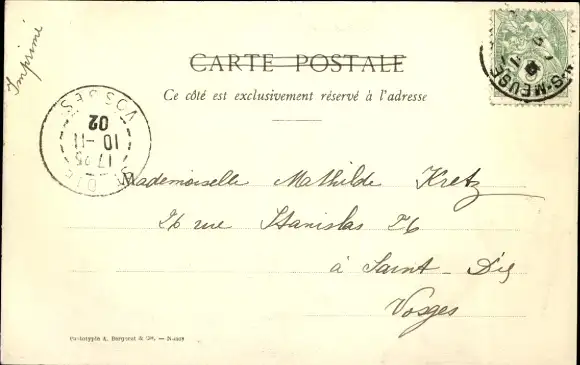 Imprimé
CARTE POSTALE
Ce côté est exclusivement réservé à l'adresse
VOSGES
17 25
10 - 11
02
S-MEUSE
Mademoiselle Mathilde Kretz
26 rue Stanislas 26
à Saint-Dié
Vosges
Phototypie A. Bergeret & Cie. — Nancy